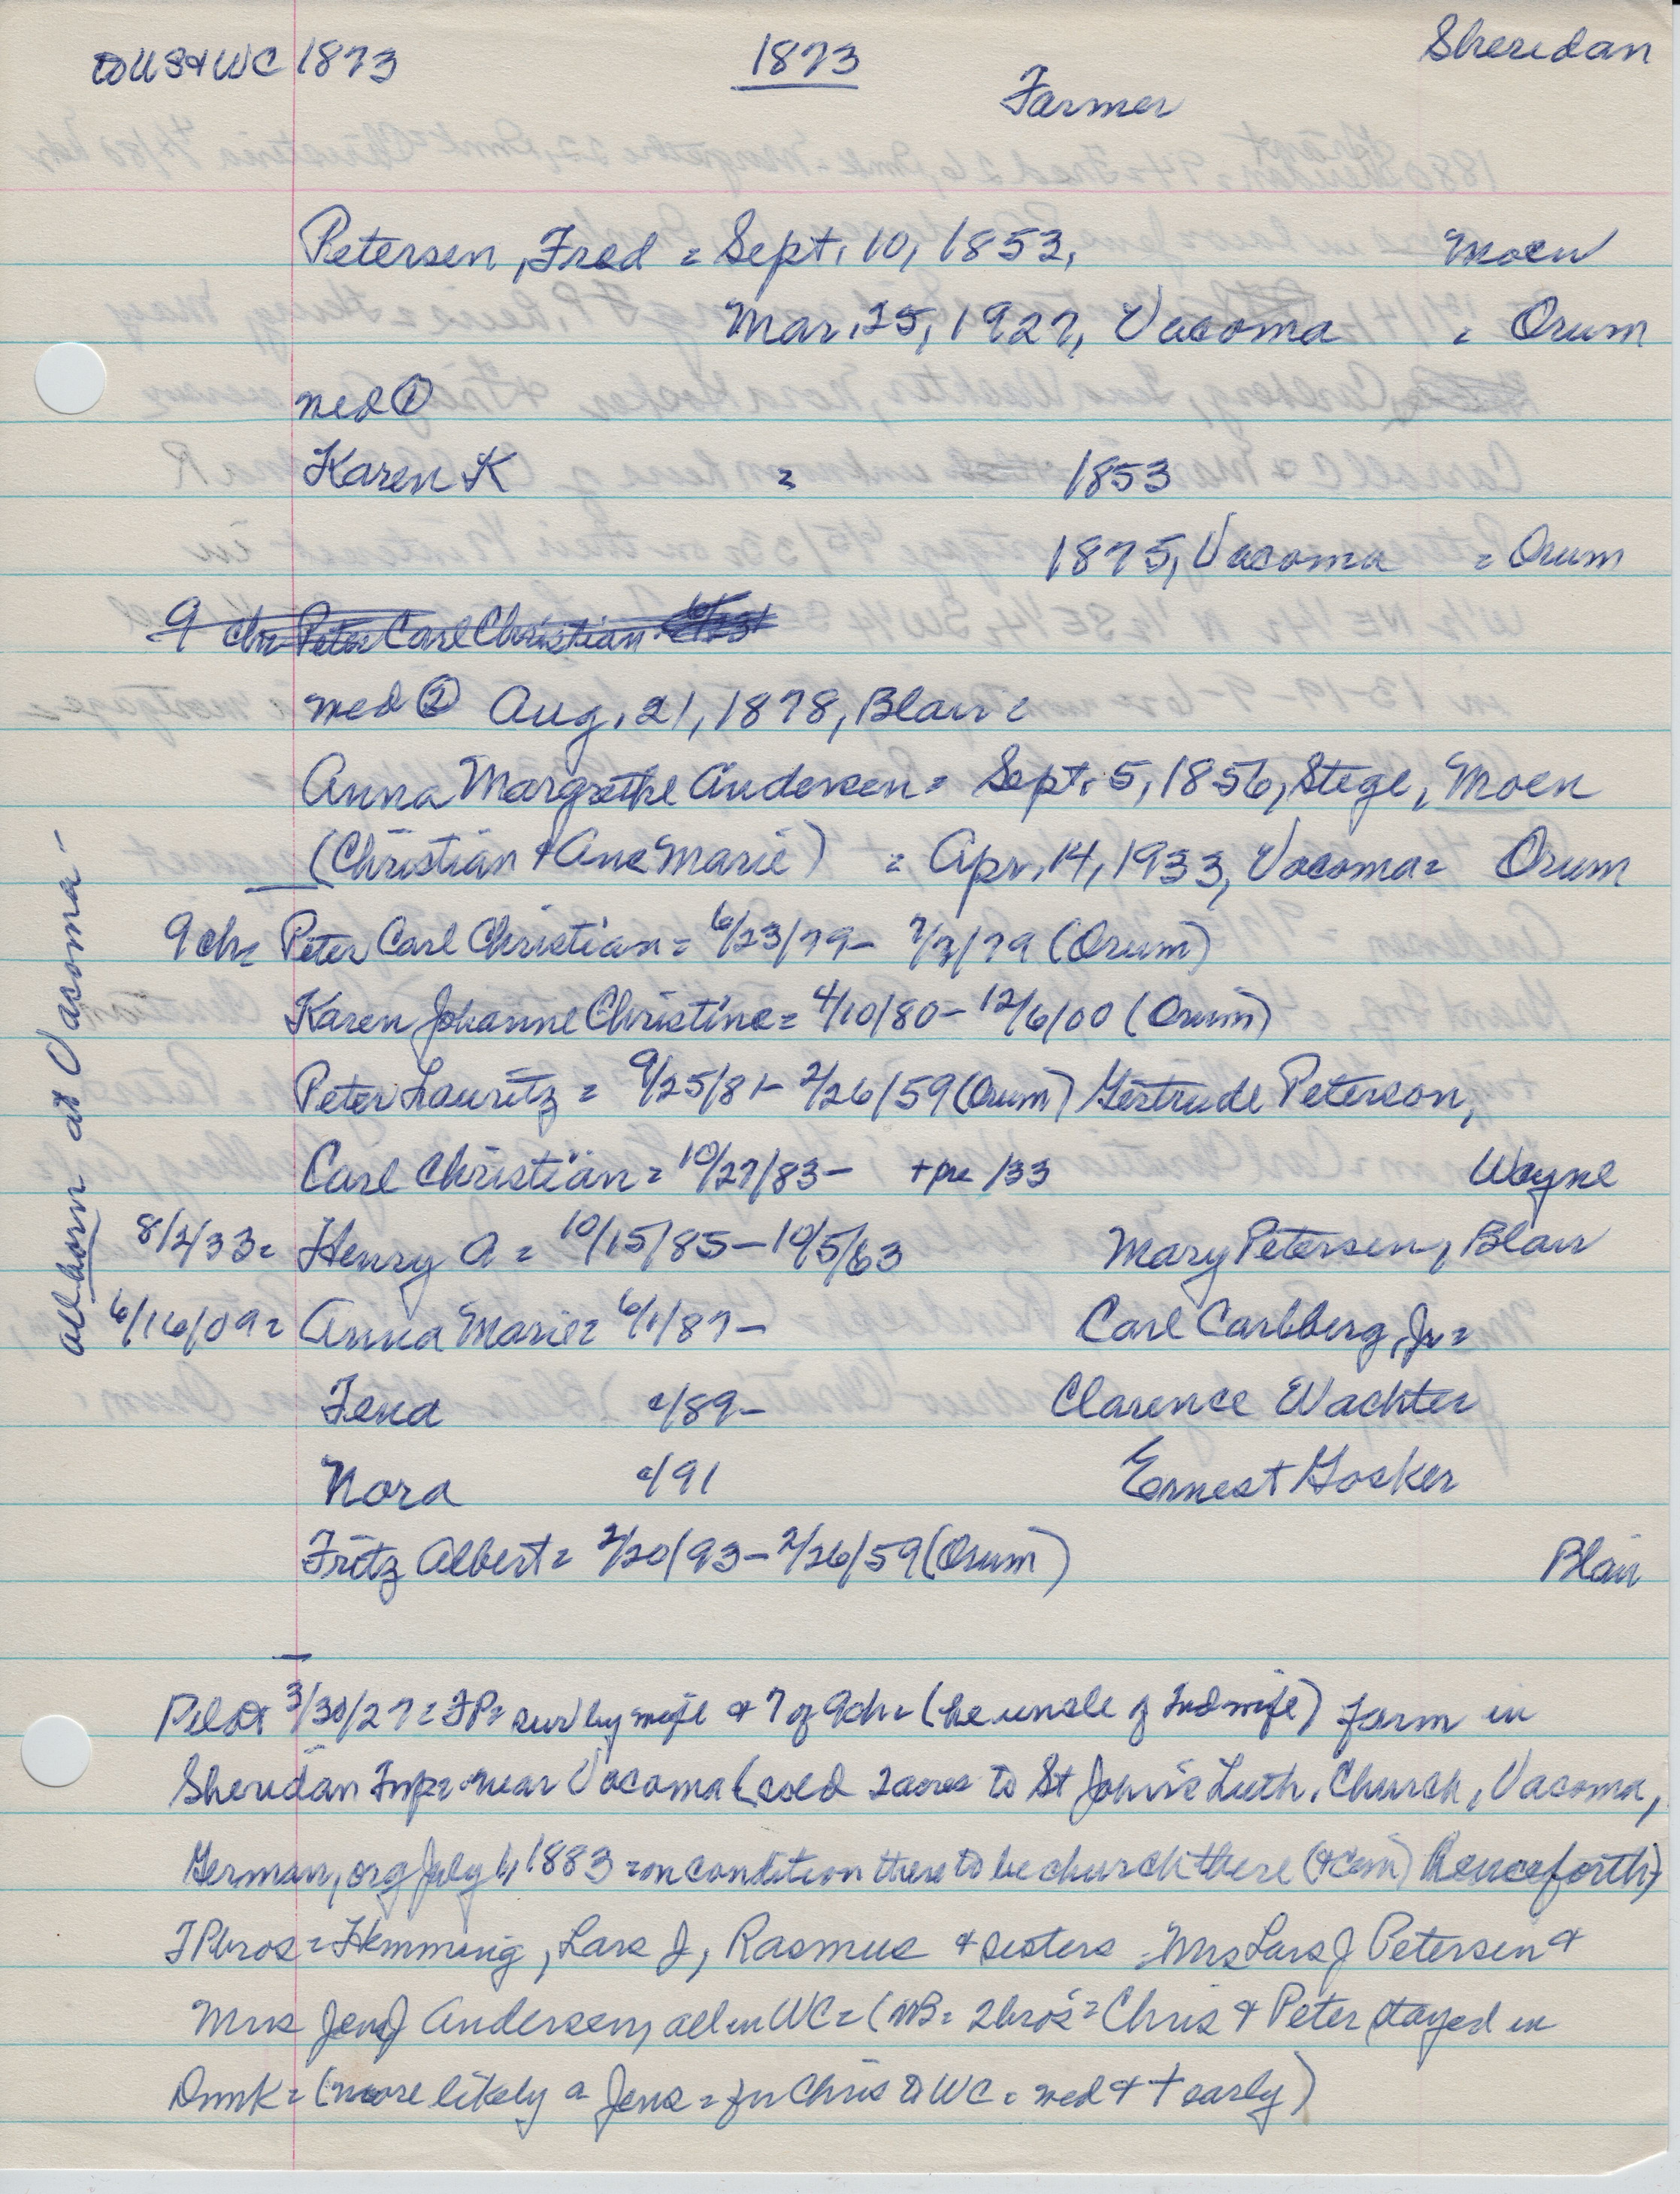 to US & WC 1873 1873 Sheridan
Farmer
Petersen, Fred = Sept. 10, 1853, Moen
Mar. 25, 1927, Vacoma = Orum
med ①
Karen K = 1853
1875, Vacoma = Orum
9 ch= Peter Carl Christian 6/23/
med ② Aug. 21, 1878, Blair =
Anna Margrethe Andersen = Sept. 5, 1856, Stege, Moen
(Christian & Ane Marie) = Apr. 14, 1933, Vacoma = Orum
all born at Vacoma -
9 ch= Peter Carl Christian = 6/23/79 - 7/3/79 (Orum)
Karen Johanne Christine = 4/10/80 - 12/6/00 (Orum)
Peter Lauritz = 9/25/81 - 2/26/59 (Orum) Gertrude Peterson,
Carl Christian = 10/27/83 - + pre /33 Wayne
8/2/33 = Henry A = 10/15/85 - 10/5/63 Mary Petersen, Blair
6/16/09 = Anna Marie = 6/1/87 - Carl Carlberg, Jr =
Tena c/89 - Clarence Wachter
Nora c/91 Ernest Gosker
Fritz Albert = 2/20/93 - 2/26/59 (Orum) Blair
Pilot 3/30/27 = FP = surv by wife & 7 of 9 ch = (he uncle of 2nd wife) farm in
Sheridan Twp = near Vacoma (sold 2 acres to St John's Luth. Church, Vacoma,
German, org July 1, 1883 = on condition there to be church there (& cem) henceforth)
FP bros = Hemming, Lars J, Rasmus & sisters = Mrs Lars J Petersen &
Mrs Jens J Andersen, all in WC = (NB = 2 bros = Chris & Peter stayed in
Dnmk = (more likely a Jens = for Chris to WC = med & + early)